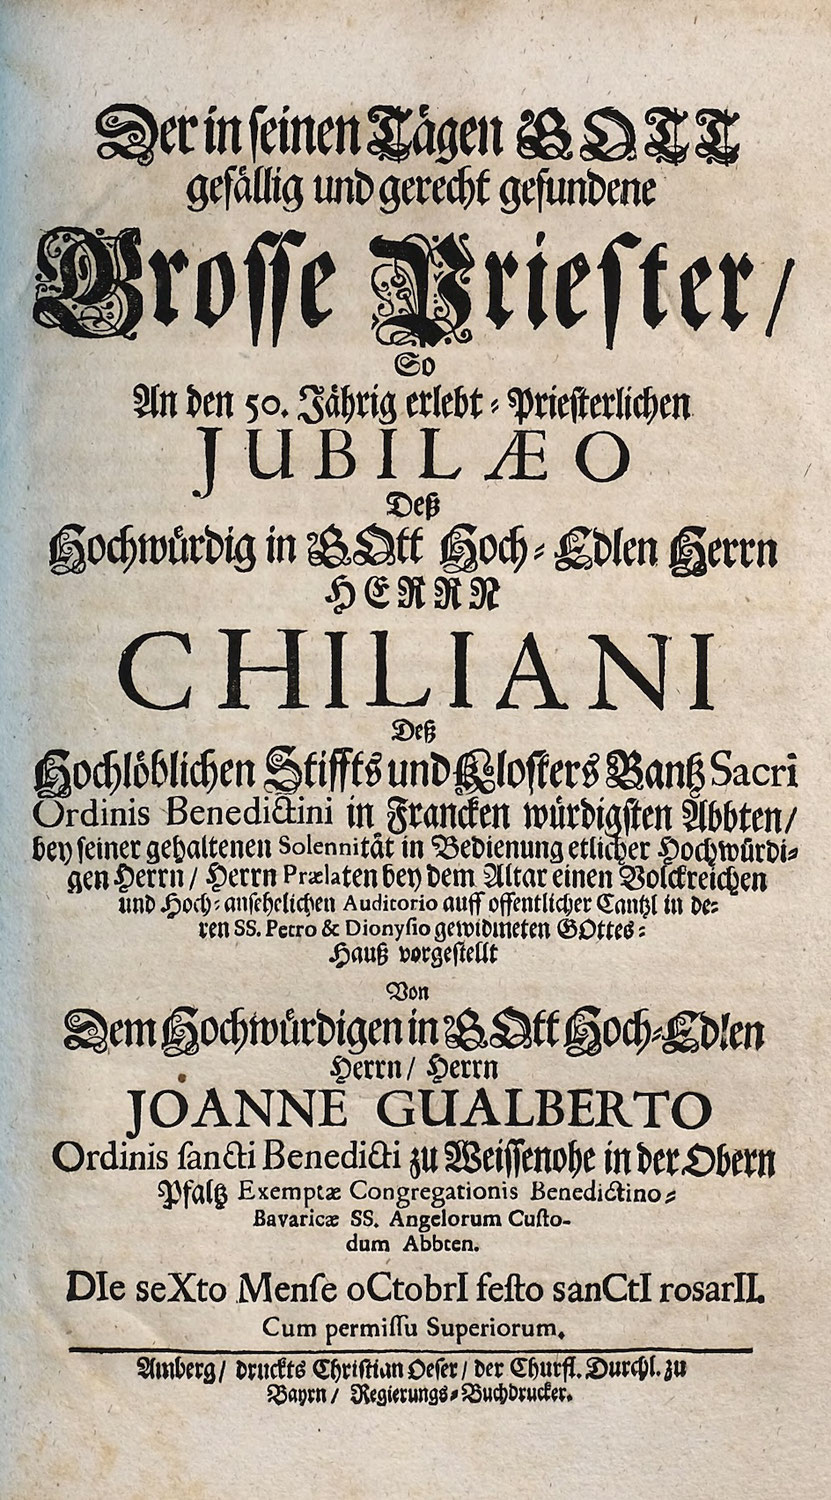 Der in seinen Tägen GOTT
gefällig und gerecht gefundene
Grosse Priester/
So
An den 50. Jährig erlebt-Priesterlichen
JUBILÆO
Deß
Hochwürdig in GOtt Hoch-Edlen Herrn
HERRN
CHILIANI
Deß
Hochlöblichen Stiffts und Klosters Bantz Sacri
Ordinis Benedictini in Francken würdigsten Abbten/
bey seiner gehaltenen Solennität in Bedienung etlicher Hochwürdi-
gen Herrn/ Herrn Prælaten bey dem Altar einen Volckreichen
und Hoch-ansehelichen Auditorio auff offentlicher Cantzl in de-
ren SS. Petro & Dionysio gewidmeten GOttes-
Hauß vorgestellt
Von
Dem Hochwürdigen in GOtt Hoch-Edlen
Herrn/ Herrn
JOANNE GUALBERTO
Ordinis sancti Benedicti zu Weissenohe in der Obern
Pfaltz Exemptæ Congregationis Benedictino-
Bavaricæ SS. Angelorum Custo-
dum Abbten.
DIe seXto Mense oCtobrI festo sanCtI rosarII.
Cum permissu Superiorum.
Amberg/ druckts Christian Oeser/ der Churfl. Durchl. zu
Bayrn/ Regierungs-Buchdrucker.